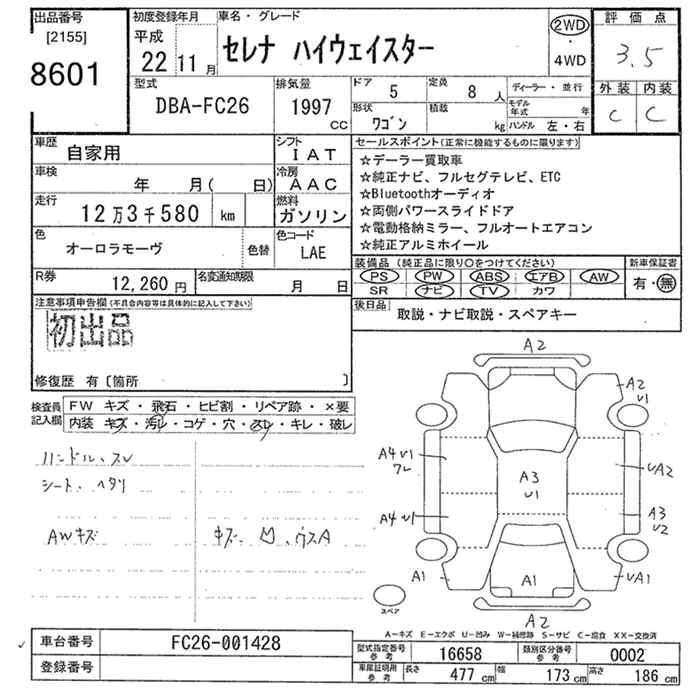 出品番号 初度登録年月 車名・グレード 評価点
[2155] 平成 セレナ ハイウェイスター 2WD・4WD 3.5
8601 22 11月
型式 排気量 ドア 5 定員 8人 ディーラー・並行 外装 内装
DBA-FC26 1997 CC 形状 ワゴン 積載 kg モデル年式 年 ハンドル 左・右 C C
車歴 自家用 シフト IAT セールスポイント(正常に機能するものに限ります)
車検 年 月( 日) 冷房 AAC ☆デーラー買取車
☆純正ナビ、フルセグテレビ、ETC
走行 12万3千580 km 燃料 ガソリン ☆Bluetoothオーディオ
☆両側パワースライドドア
色 オーロラモーヴ 色替 色コード LAE ☆電動格納ミラー、フルオートエアコン
☆純正アルミホイール
R券 12,260円 名変通知期限 月 日 装備品(純正品に限り○をつけてください) 新車保証書
PS PW ABS エアB AW 有・無
SR ナビ TV カワ
注意事項申告欄(不具合内容等は具体的に記入して下さい) 後日品 取説・ナビ取説・スペアキー
初出品
修復歴 有〔箇所 〕
検査員記入欄 FW キズ・飛石・ヒビ割・リペア跡・×要
内装 キズ・汚レ・コゲ・穴・スレ・キレ・破レ
ハンドル、スレ
シート、ヘタリ
AWキズ キズ、凹、ウスA
A2
A2
U1
A4 U1
ワレ
A3
U1
UA2
A4 U1
A3
U2
A1
A1
UA1
A2
スペア
A-キズ E-エクボ U-凹み W-補修跡 S-サビ C-腐食 XX-交換済
車台番号 FC26-001428 型式指定番号参考 16658 類別区分番号参考 0002
登録番号 車庫証明用参考 長さ 477 cm 幅 173 cm 高さ 186 cm